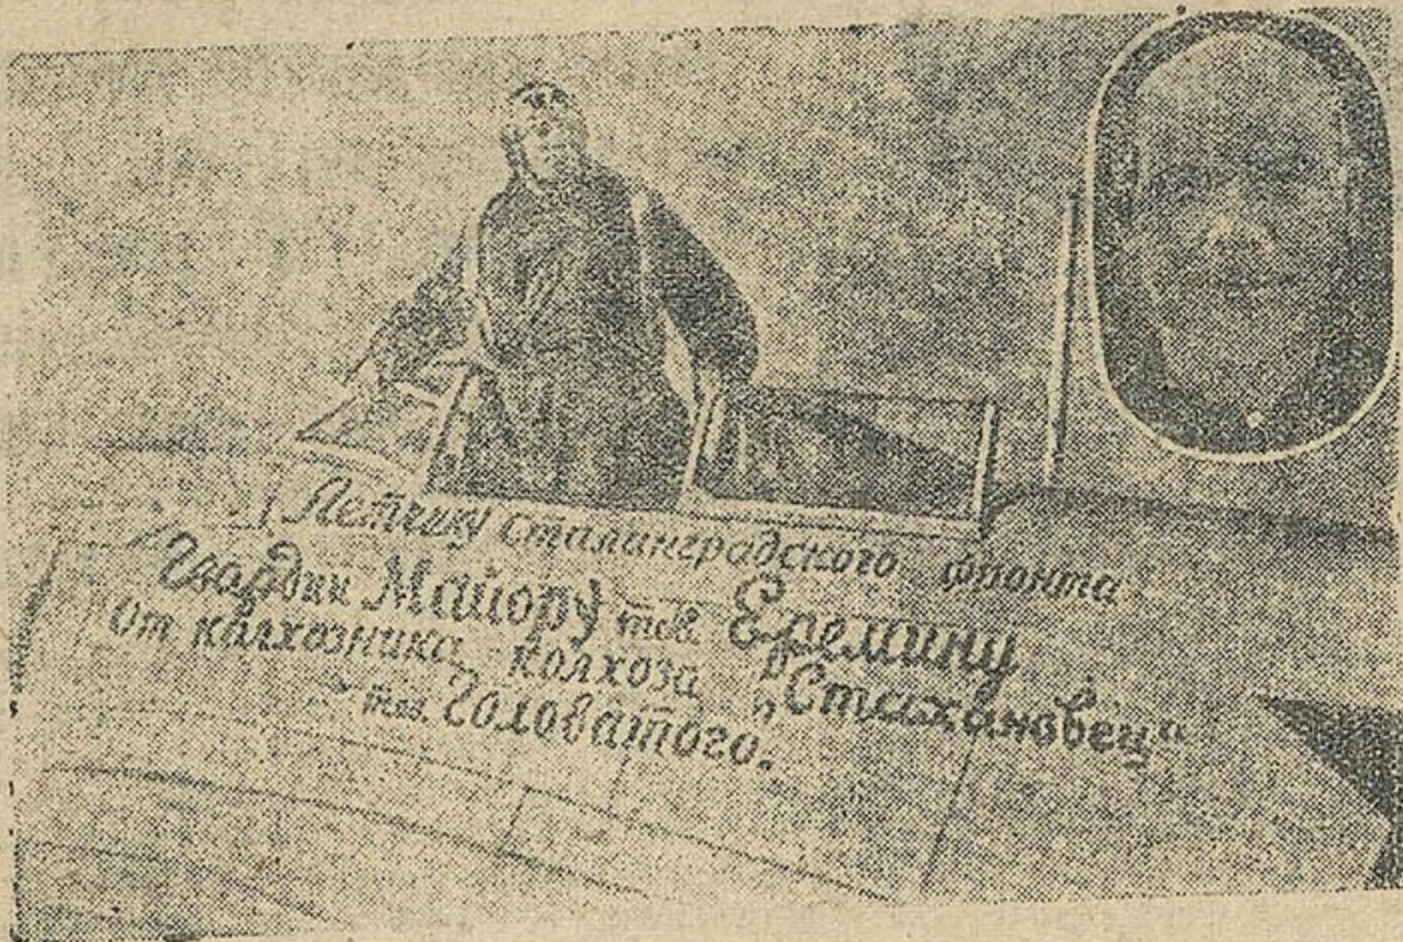 Летчику Сталинградского фронта
Гвардии Майору тов. Еремину
От колхозника колхоза "Стахановец"
тов. Головатого.